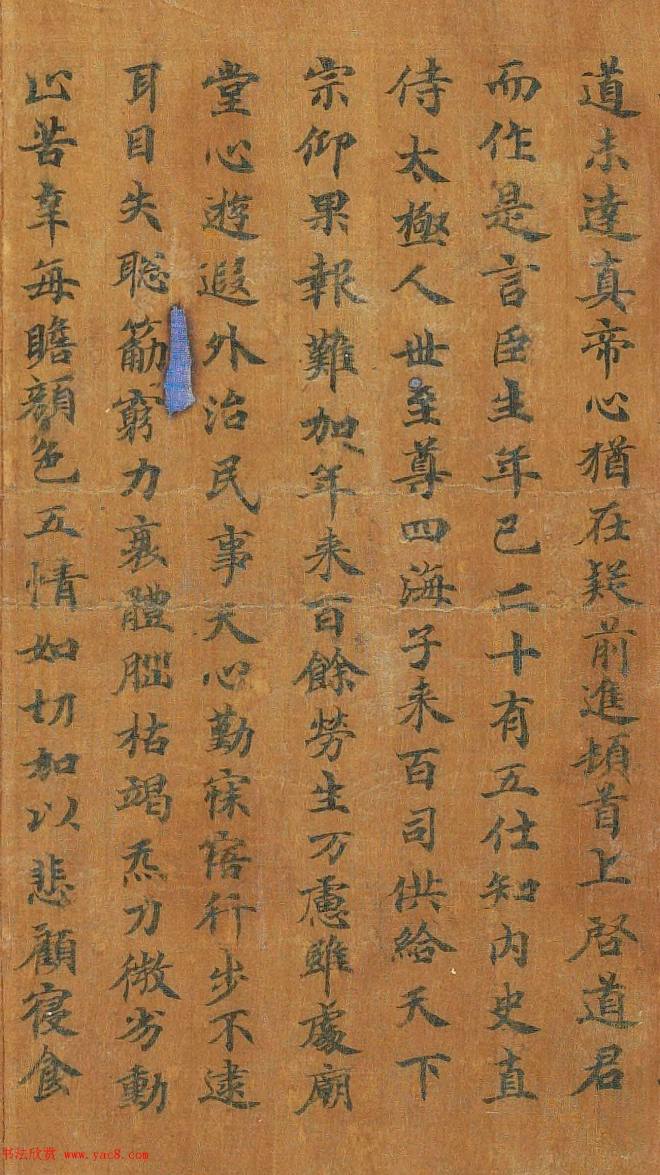 道未達真帝心猶在疑前進頓首上啓道君
而作是言臣生年已二十有五仕知内史直
侍太極人世至尊四海子来百司供給天下
宗仰果報難加年来百餘勞生万慮雖處廟
堂心遊遐外治民事天心勤寐寤行步不逮
耳目失聡筋窮力衰體𦛁枯竭炁力微劣動
止苦辛每瞻顔色五情如切加以悲顧寝食
书法欣赏 www.yac8.com